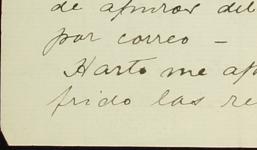 de apuros del
por correo –
Harto me ap
frido las re